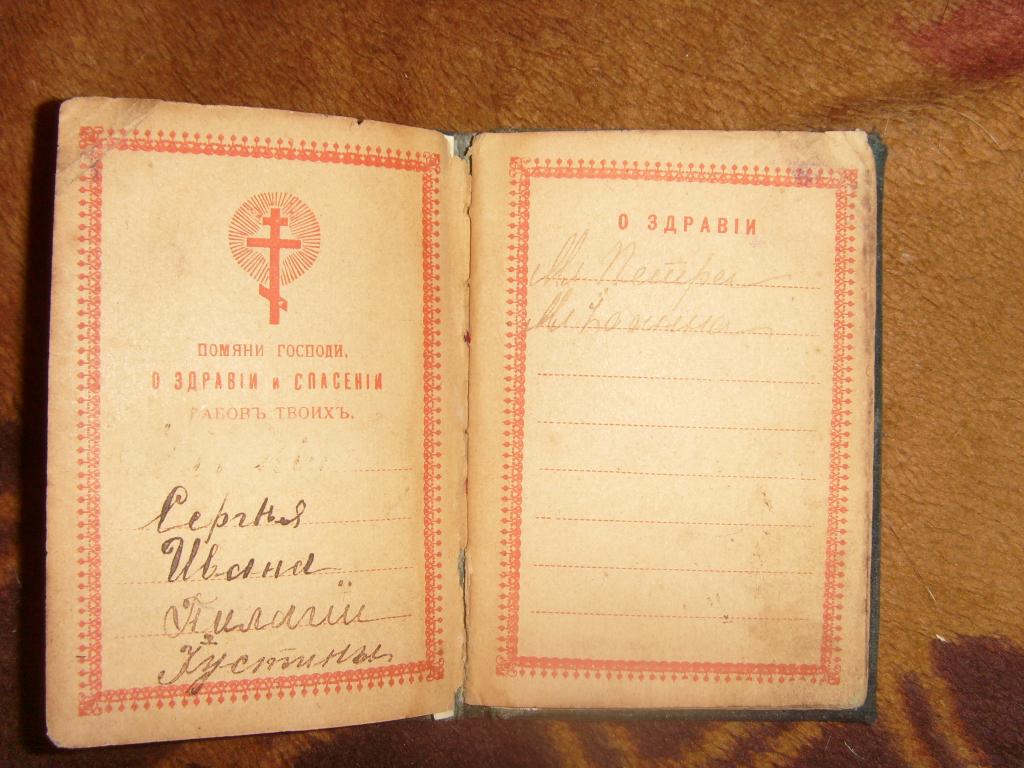 ПОМЯНИ ГОСПОДИ,
О ЗДРАВІИ и СПАСЕНІИ
РАБОВЪ ТВОИХЪ.
Сергѣя
Ивана
Пилагіи
Іустины
О ЗДРАВІИ
Мл Петра
Мл